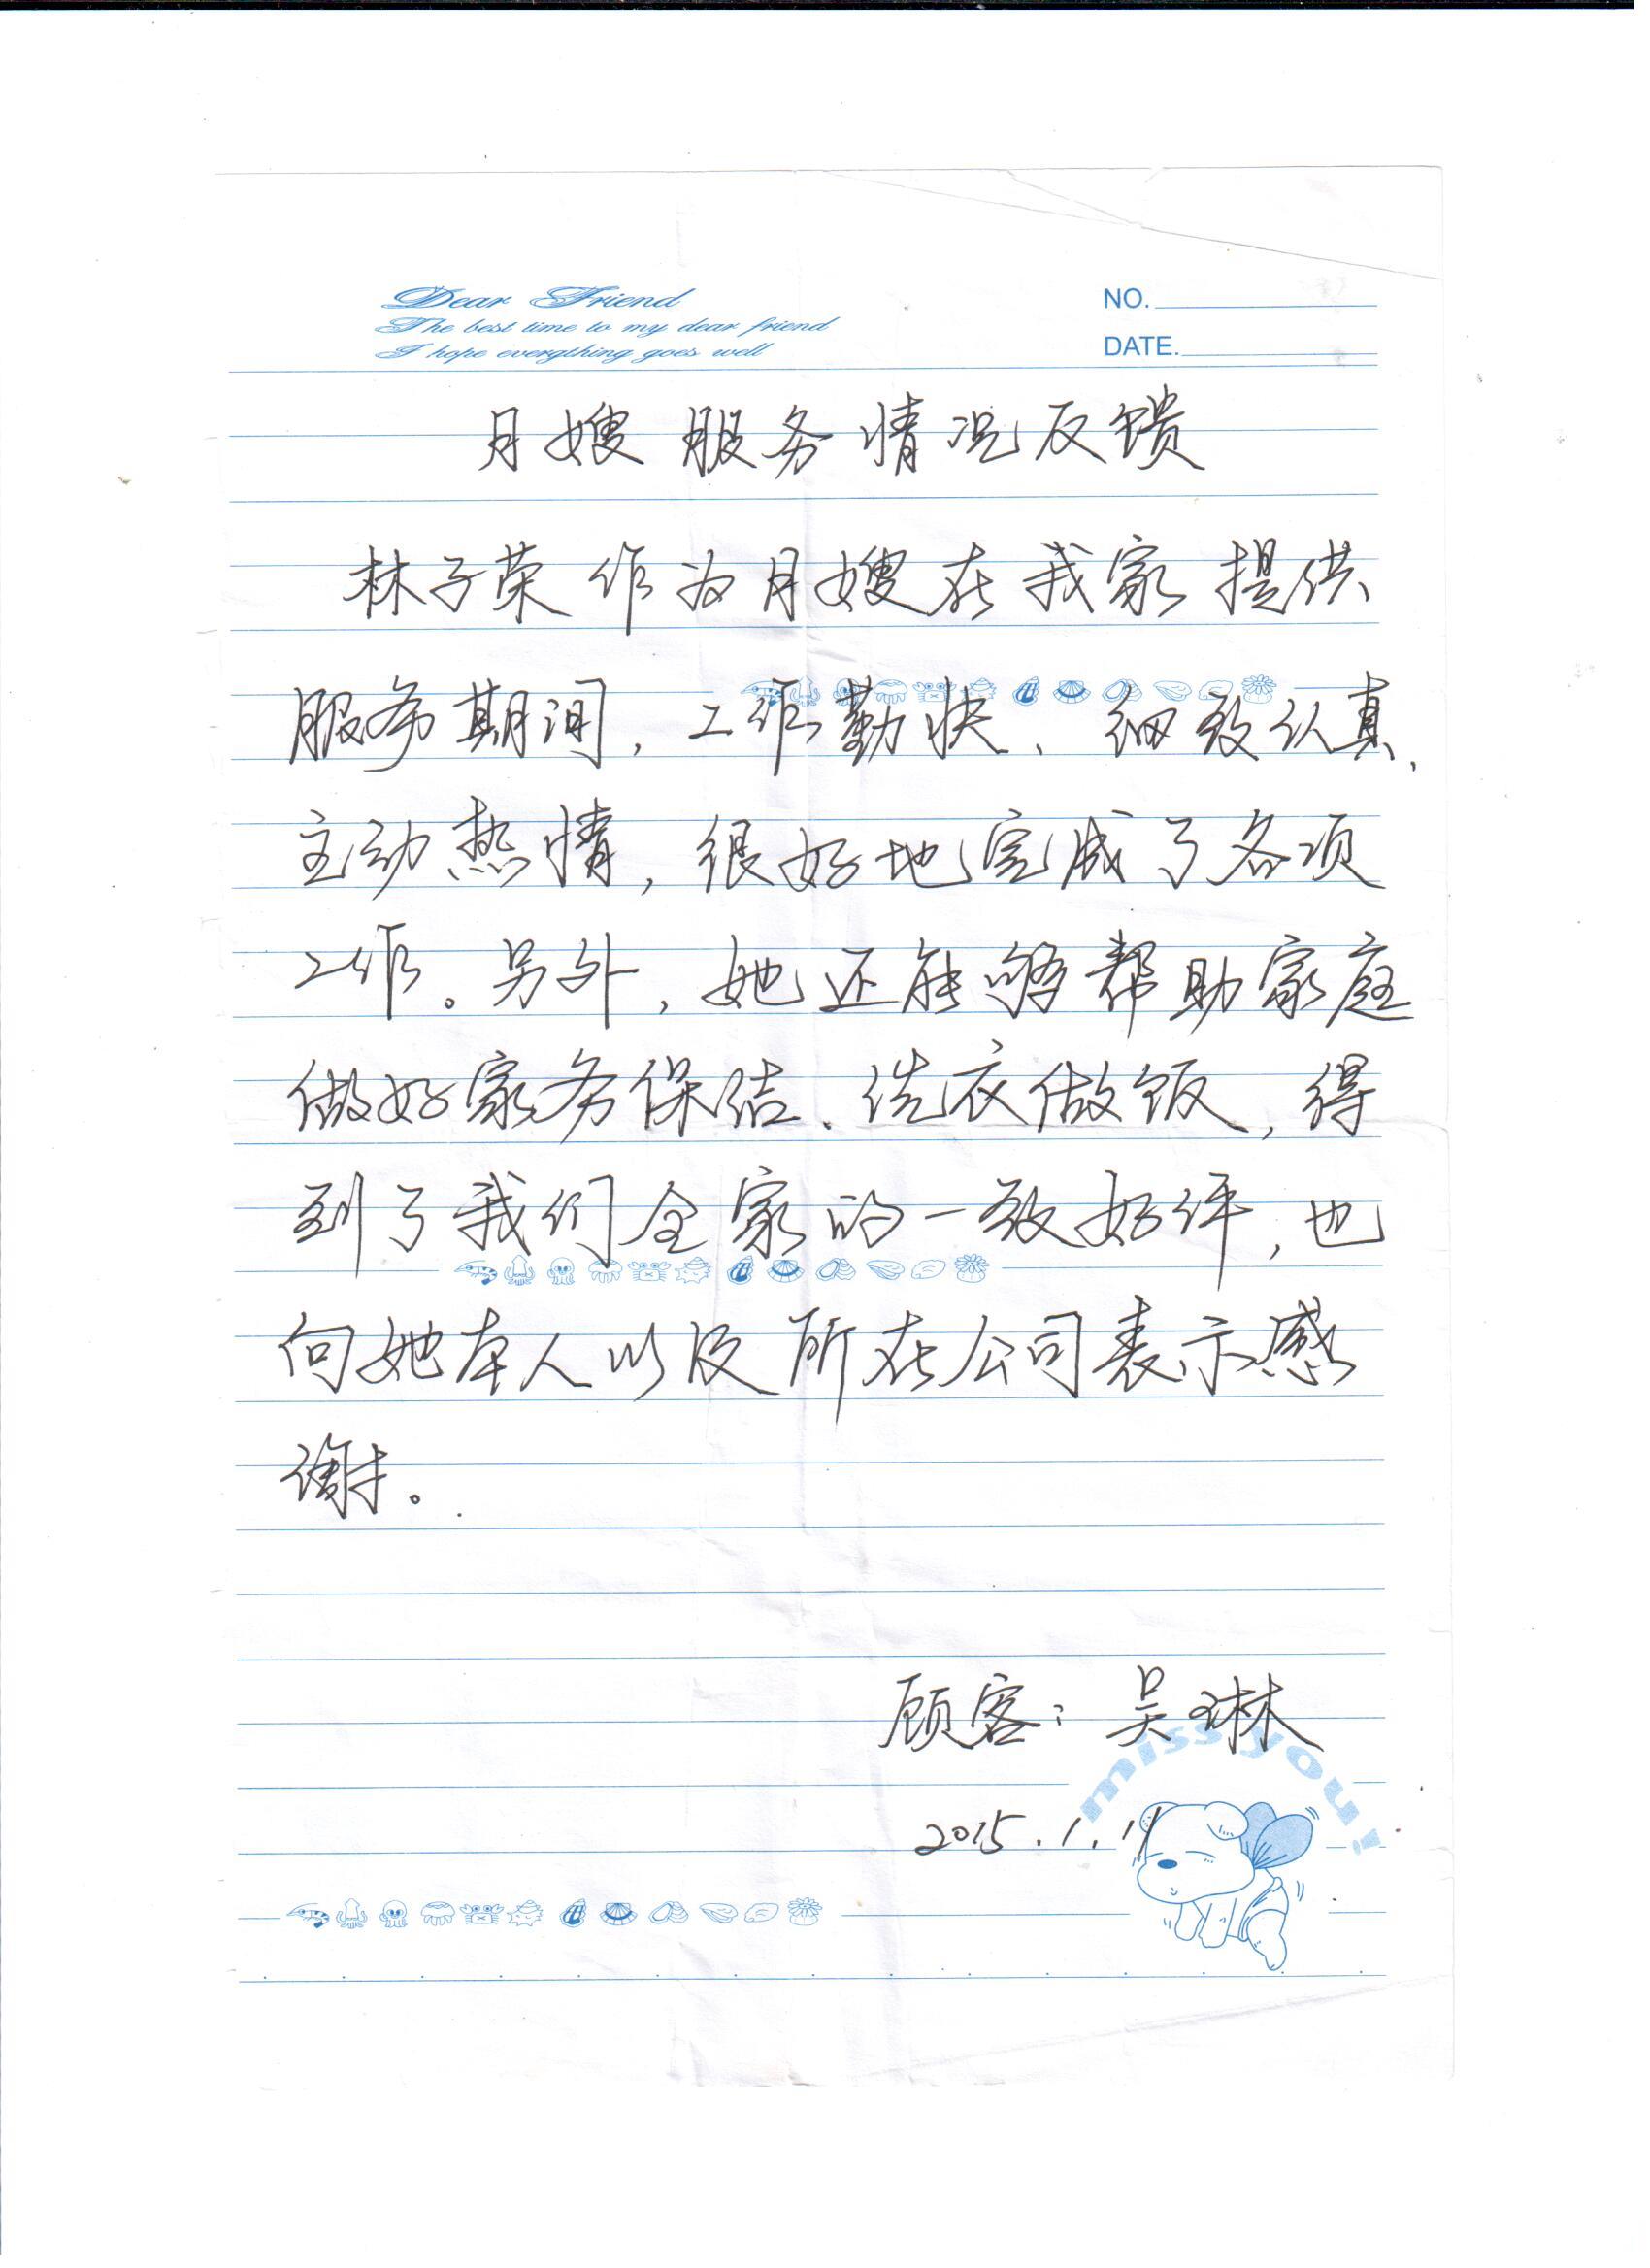 Dear Friend
The best time to my dear friend
I hope evergthing goes well
NO.
DATE.
月嫂服务情况反馈
林子荣作为月嫂在我家提供
服务期间，工作勤快、细致认真、
主动热情，很好地完成了各项
工作。另外，她还能够帮助家庭
做好家务保洁、洗衣做饭，得
到了我们全家的一致好评，也
向她本人以及所在公司表示感
谢。
顾客：吴琳
miss you!
2015.1.11